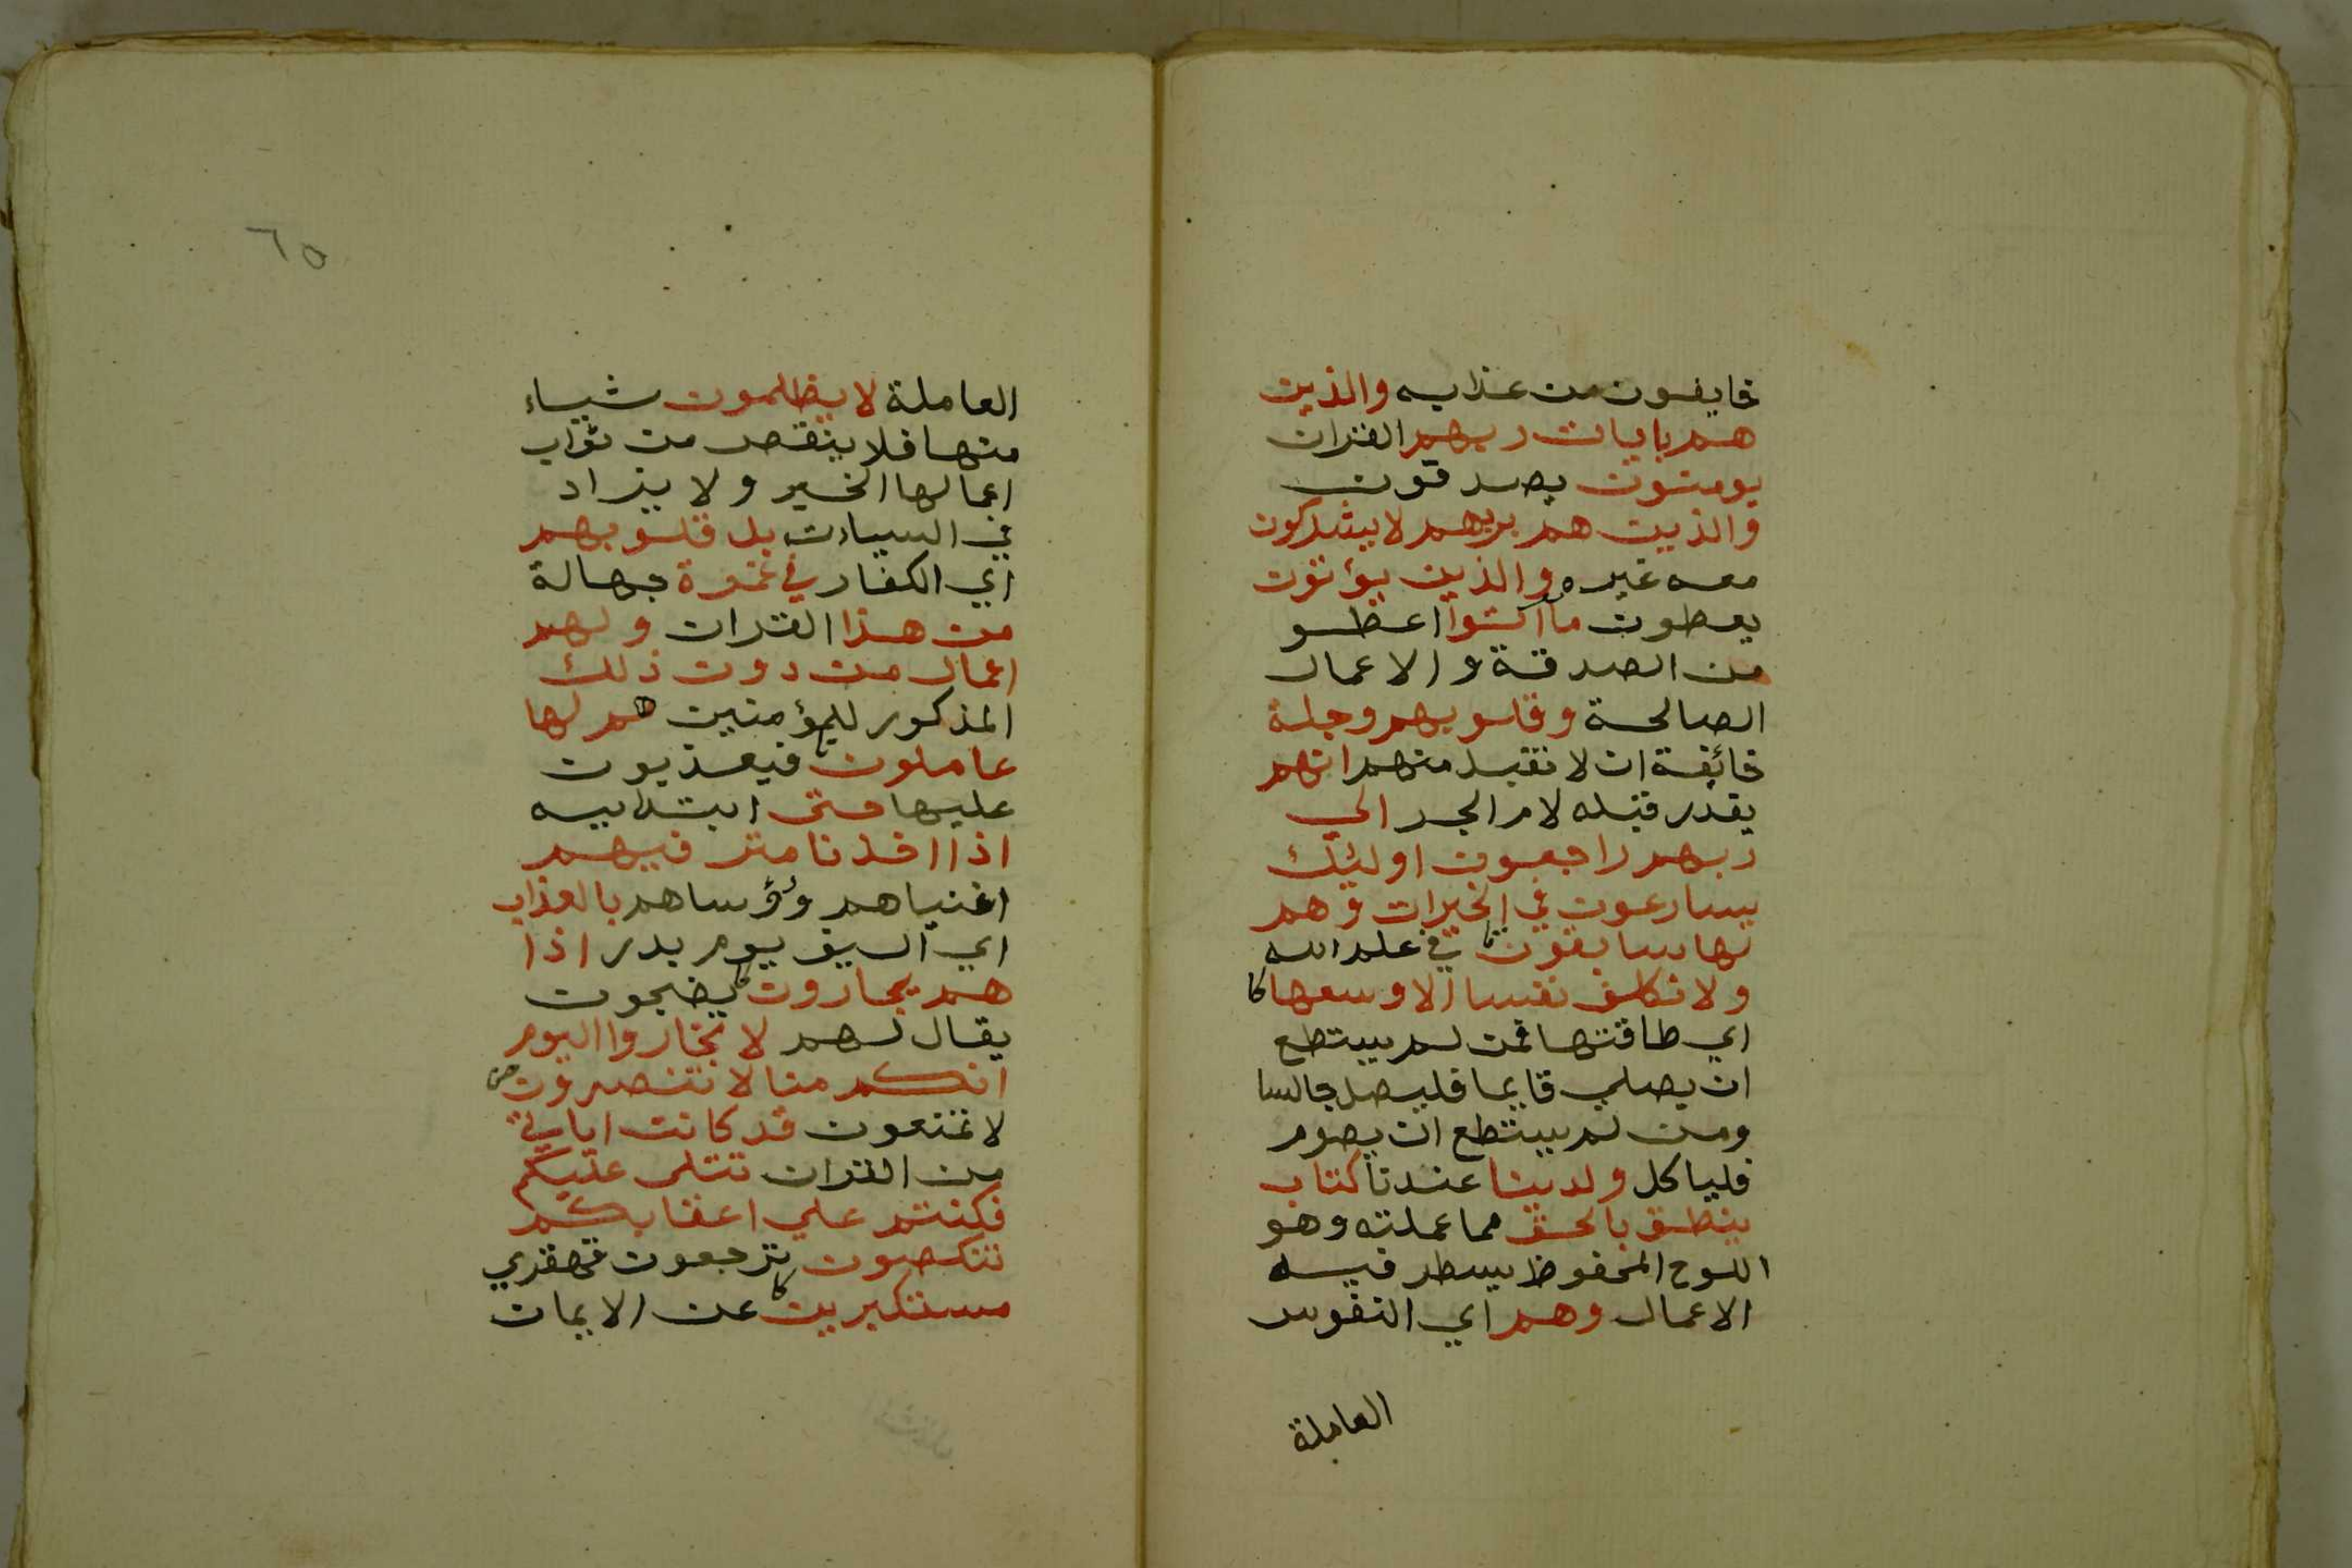 خايفون من عذابه والذين
هم بايات ربهم القران
يومنون يصدقون
والذين هم بربهم لا يشركون
معه غيره والذين يؤتون
يعطون ما اتوا اعطو
من الصدقة والاعمال
الصالحة وقلوبهم وجلة
خائفة ان لا تقبل منهم انهم
يقدر قبله لام الجر الي
ربهم راجعون اوليئك
يسارعون في الخيرات وهم
لها سابقون في علم الله
ولا نكلف نفسا الا وسعها
اي طاقتها فمن لم يستطع
ان يصلي قايما فليصل جالسا
ومن لم يستطع ان يصوم
فلياكل ولدينا عندنا كتاب
ينطق بالحق مما عملته وهو
اللوح المحفوظ يسطر فيه
الاعمال وهم اي النفوس
العاملة
٦٥
العاملة لا يظلمون شيباء
منها فلا ينقص من ثواب
اعمالها الخير ولا يزاد
في السياءت بل قلوبهم
اي الكفار في غمرة جهالة
من هذا القران ولهم
اعمال من دون ذلك
المذكور للمؤمنين هم لها
عاملون فيعذبون
عليها حتى ابتدايية
اذا اخذنا مترفيهم
اغنياهم ورؤساهم بالعذاب
اي السيف يوم بدر اذا
هم يجارون يضجون
يقال لهم لا تجاروا اليوم
انكم منا لا تنصرون
لا تمنعون قد كانت اياتي
من القران تتلى عليكم
فكنتم علي اعقابكم
تنكصون ترجعون قهقري
مستكبرين عن الايمان